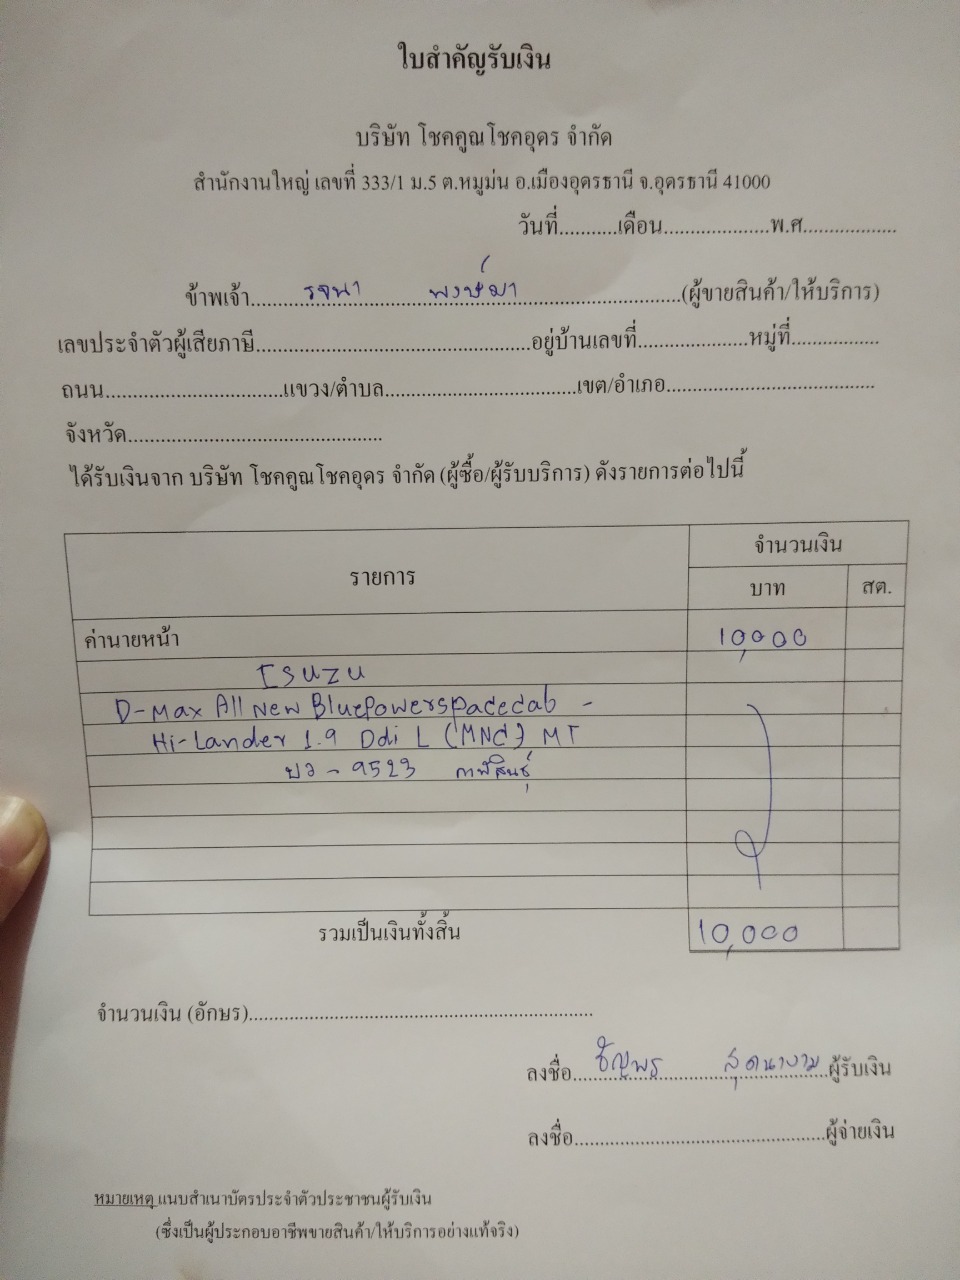 ใบสำคัญรับเงิน
บริษัท โชคคูณโชคอุดร จำกัด
สำนักงานใหญ่ เลขที่ 333/1 ม.5 ต.หมูม่น อ.เมืองอุดรธานี จ.อุดรธานี 41000
วันที่...........เดือน....................พ.ศ..................
ข้าพเจ้า.......... รจนา พงษ์มา ..............................(ผู้ขายสินค้า/ให้บริการ)
เลขประจำตัวผู้เสียภาษี....................................................อยู่บ้านเลขที่.....................หมู่ที่.................
ถนน..................................แขวง/ตำบล.....................................เขต/อำเภอ........................................
จังหวัด.................................................
ได้รับเงินจาก บริษัท โชคคูณโชคอุดร จำกัด (ผู้ซื้อ/ผู้รับบริการ) ดังรายการต่อไปนี้
รายการ จำนวนเงิน
บาท สต.
ค่านายหน้า 10,000
ISUZU
D-Max All New Bluepowerspacecab -
Hi-Lander 1.9 Ddi L (MNC) MT
บว - 9523 กาฬสินธุ์
รวมเป็นเงินทั้งสิ้น 10,000
จำนวนเงิน (อักษร)...................................................................
ลงชื่อ.... ธัญพร สุดนางาม ผู้รับเงิน
ลงชื่อ.................................................ผู้จ่ายเงิน
หมายเหตุ แนบสำเนาบัตรประจำตัวประชาชนผู้รับเงิน
(ซึ่งเป็นผู้ประกอบอาชีพขายสินค้า/ให้บริการอย่างแท้จริง)